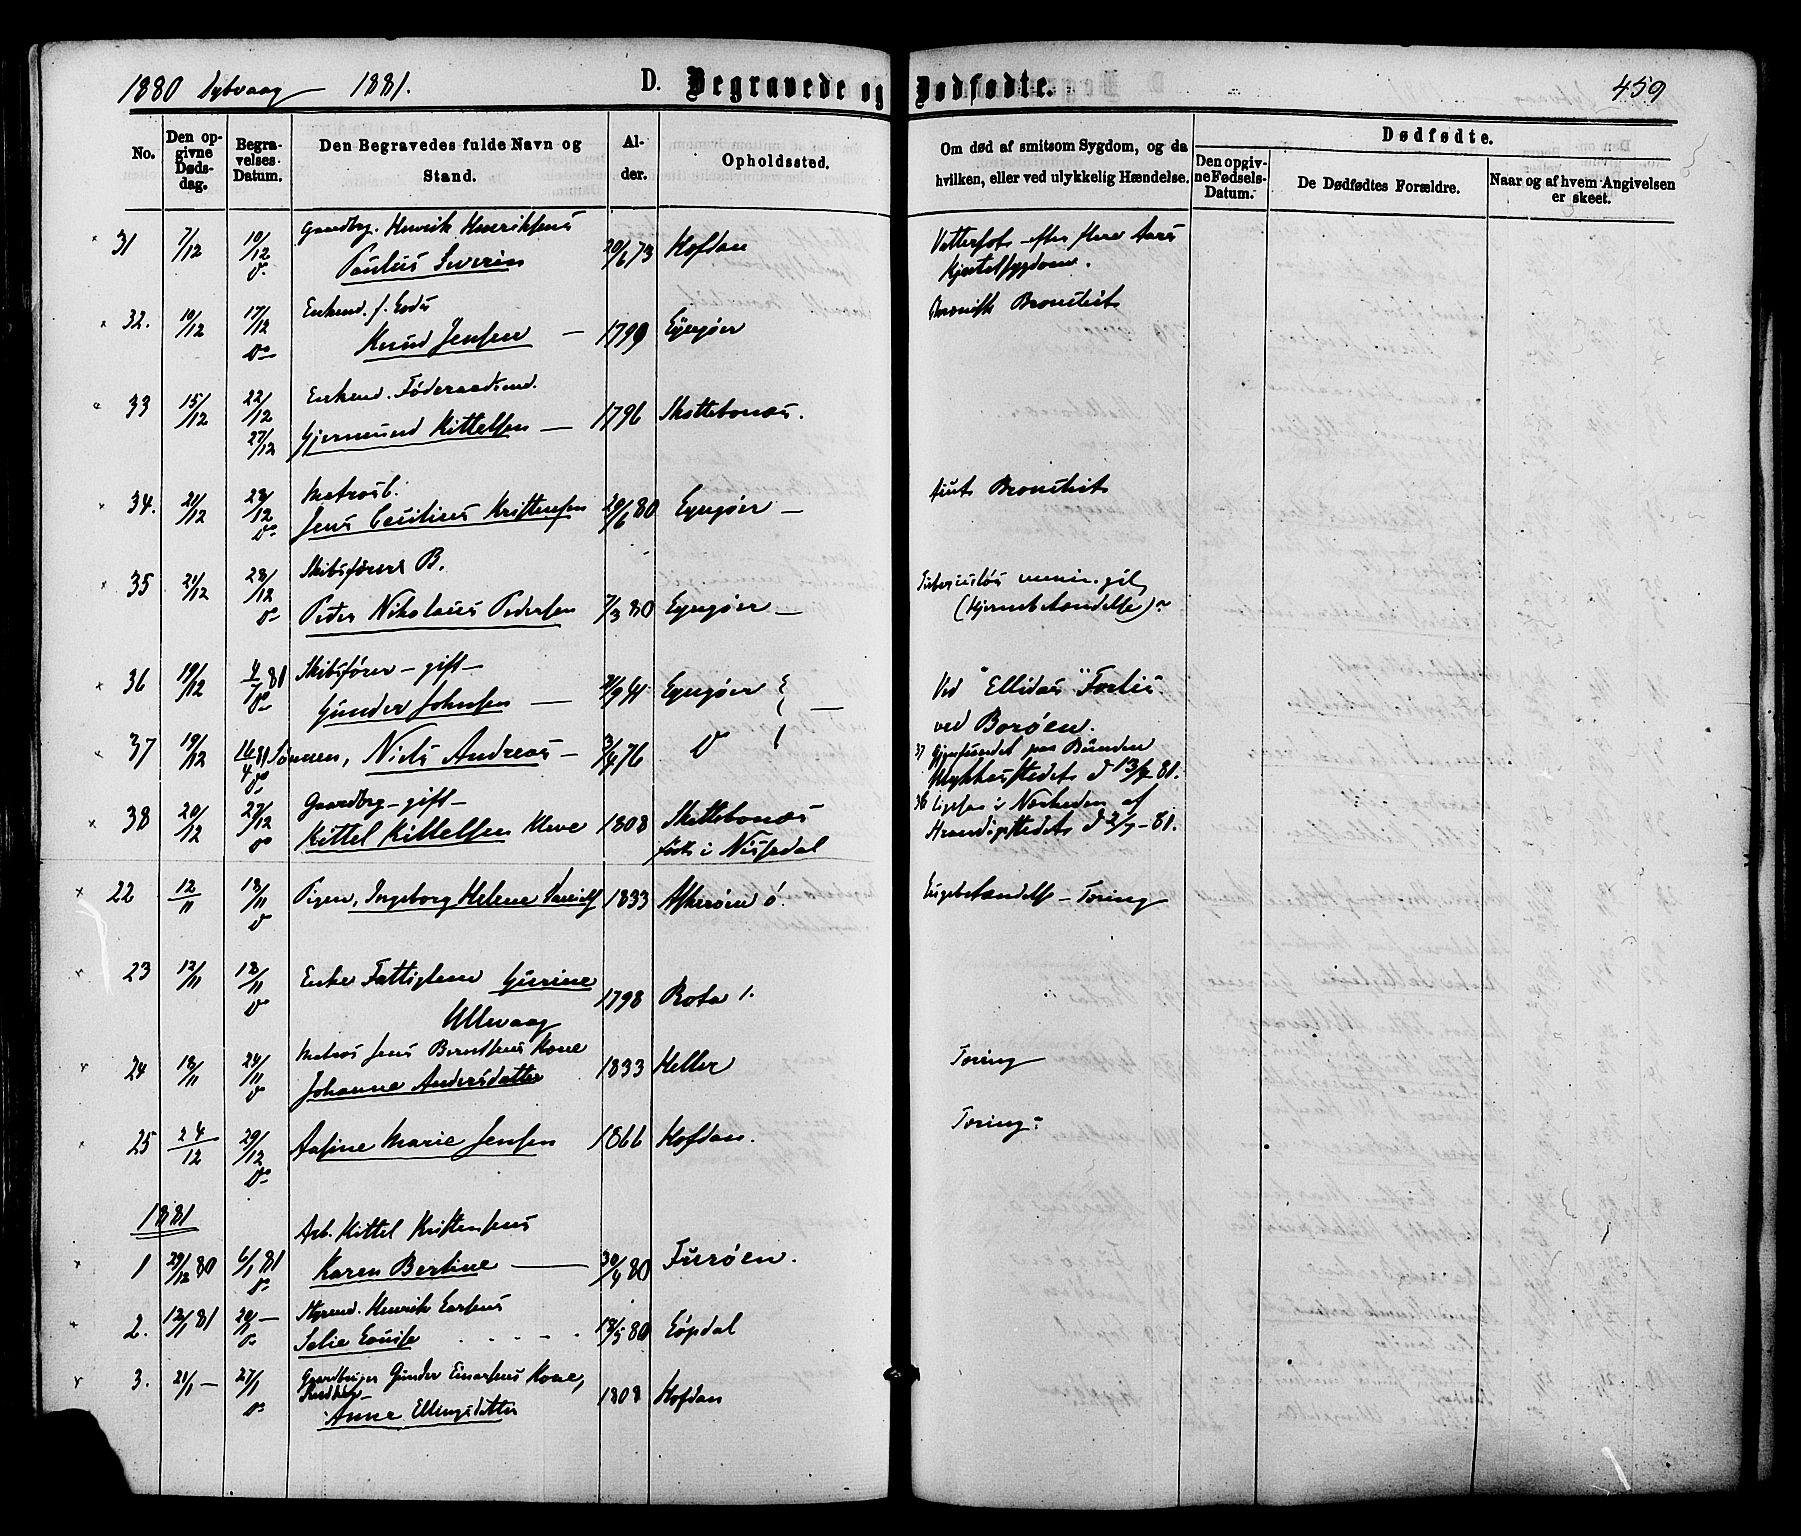 1880 Dybvaag 1881. D. Begravede og Dødfødte. 459
No. Den opgivne Dødsdag. Begravelses-Datum. Den Begravedes fulde Navn og Stand. Alder. Opholdssted. Om død af smitsom Sygdom, og da hvilken, eller ved ulykkelig Hændelse. Dødfødte.
Den opgivne Fødsels-Datum. De Dødfødtes Forældre. Naar og af hvem Angivelsen er skeet.
31 7/12 10/12 Gaardbrg. Henrik Henriksens
Paulus Severin 20/6 73 Hofdan efter flere Aars
Kjertelsygdom.
32. 10/12 17/12 Enkemd. f. Lods
Knud Jensen — 1799 Eyngøer Kronisk Bronchit
33 15/12 22/12 27/12 Enkemd. Føderaadsmd.
Gjermund Kittelsen — 1796 Skottebonæs.
34. 21/12 28/12 Matrosb.
Jens Kristensen 29/6 80 Eyngøer — Akut Bronchit
35 21/12 28/12 Skibsførers B.
Peder Nikolaus Pedersen 7/3 80 Eyngøer —
(Hjernebetændelse)
36 19/12 4/7 81 Skibsfører — gift —
Gunder Johnsen — Eyngøer Ved "Ellidas" Forlis
ved Borøen.
37 19/12 16/4 81 Sønnen, Niels Andreas — 3/4 76 37 Gjenfundet paa Bunden
38 20/12 27/12 Gaardbrg — gift — 36 Ligesaa i Nærheden af
Kittel Kittelsen Kleve 1808 Skottebonæs
født i Nissedal Strandingsstedet d 2/7 - 81.
22 12/11 18/11 Pigen, Ingeborg Helene 1833 Askerøen ø. Lugebetændelse — Tæring
23 12/11 18/11 Enke Fattiglem Gurine
Ullevaag 1798 Rota 1.
24 18/11 24/11 Matros Jens Berntsens Kone
Johanne Andersdatter 1833 Heller Tæring
25 24/12 29/12 Aasine Marie Jensen 1866 Hofdan. Tæring?
1881
Arb. Kittel Kristensens
1 29/12 80 6/1 81 Karen Bertine — 30/4 80 Furøen.
2. 12/1 81 20/1 — Styrmd. Henrik Larsens
Selie Louise 18/5 80 Løpdal
3. 21/1 — 27/1 Gaardbruger Gunder Einarsens Kone,
Anne Ellingsdatter 1808 Hofdan